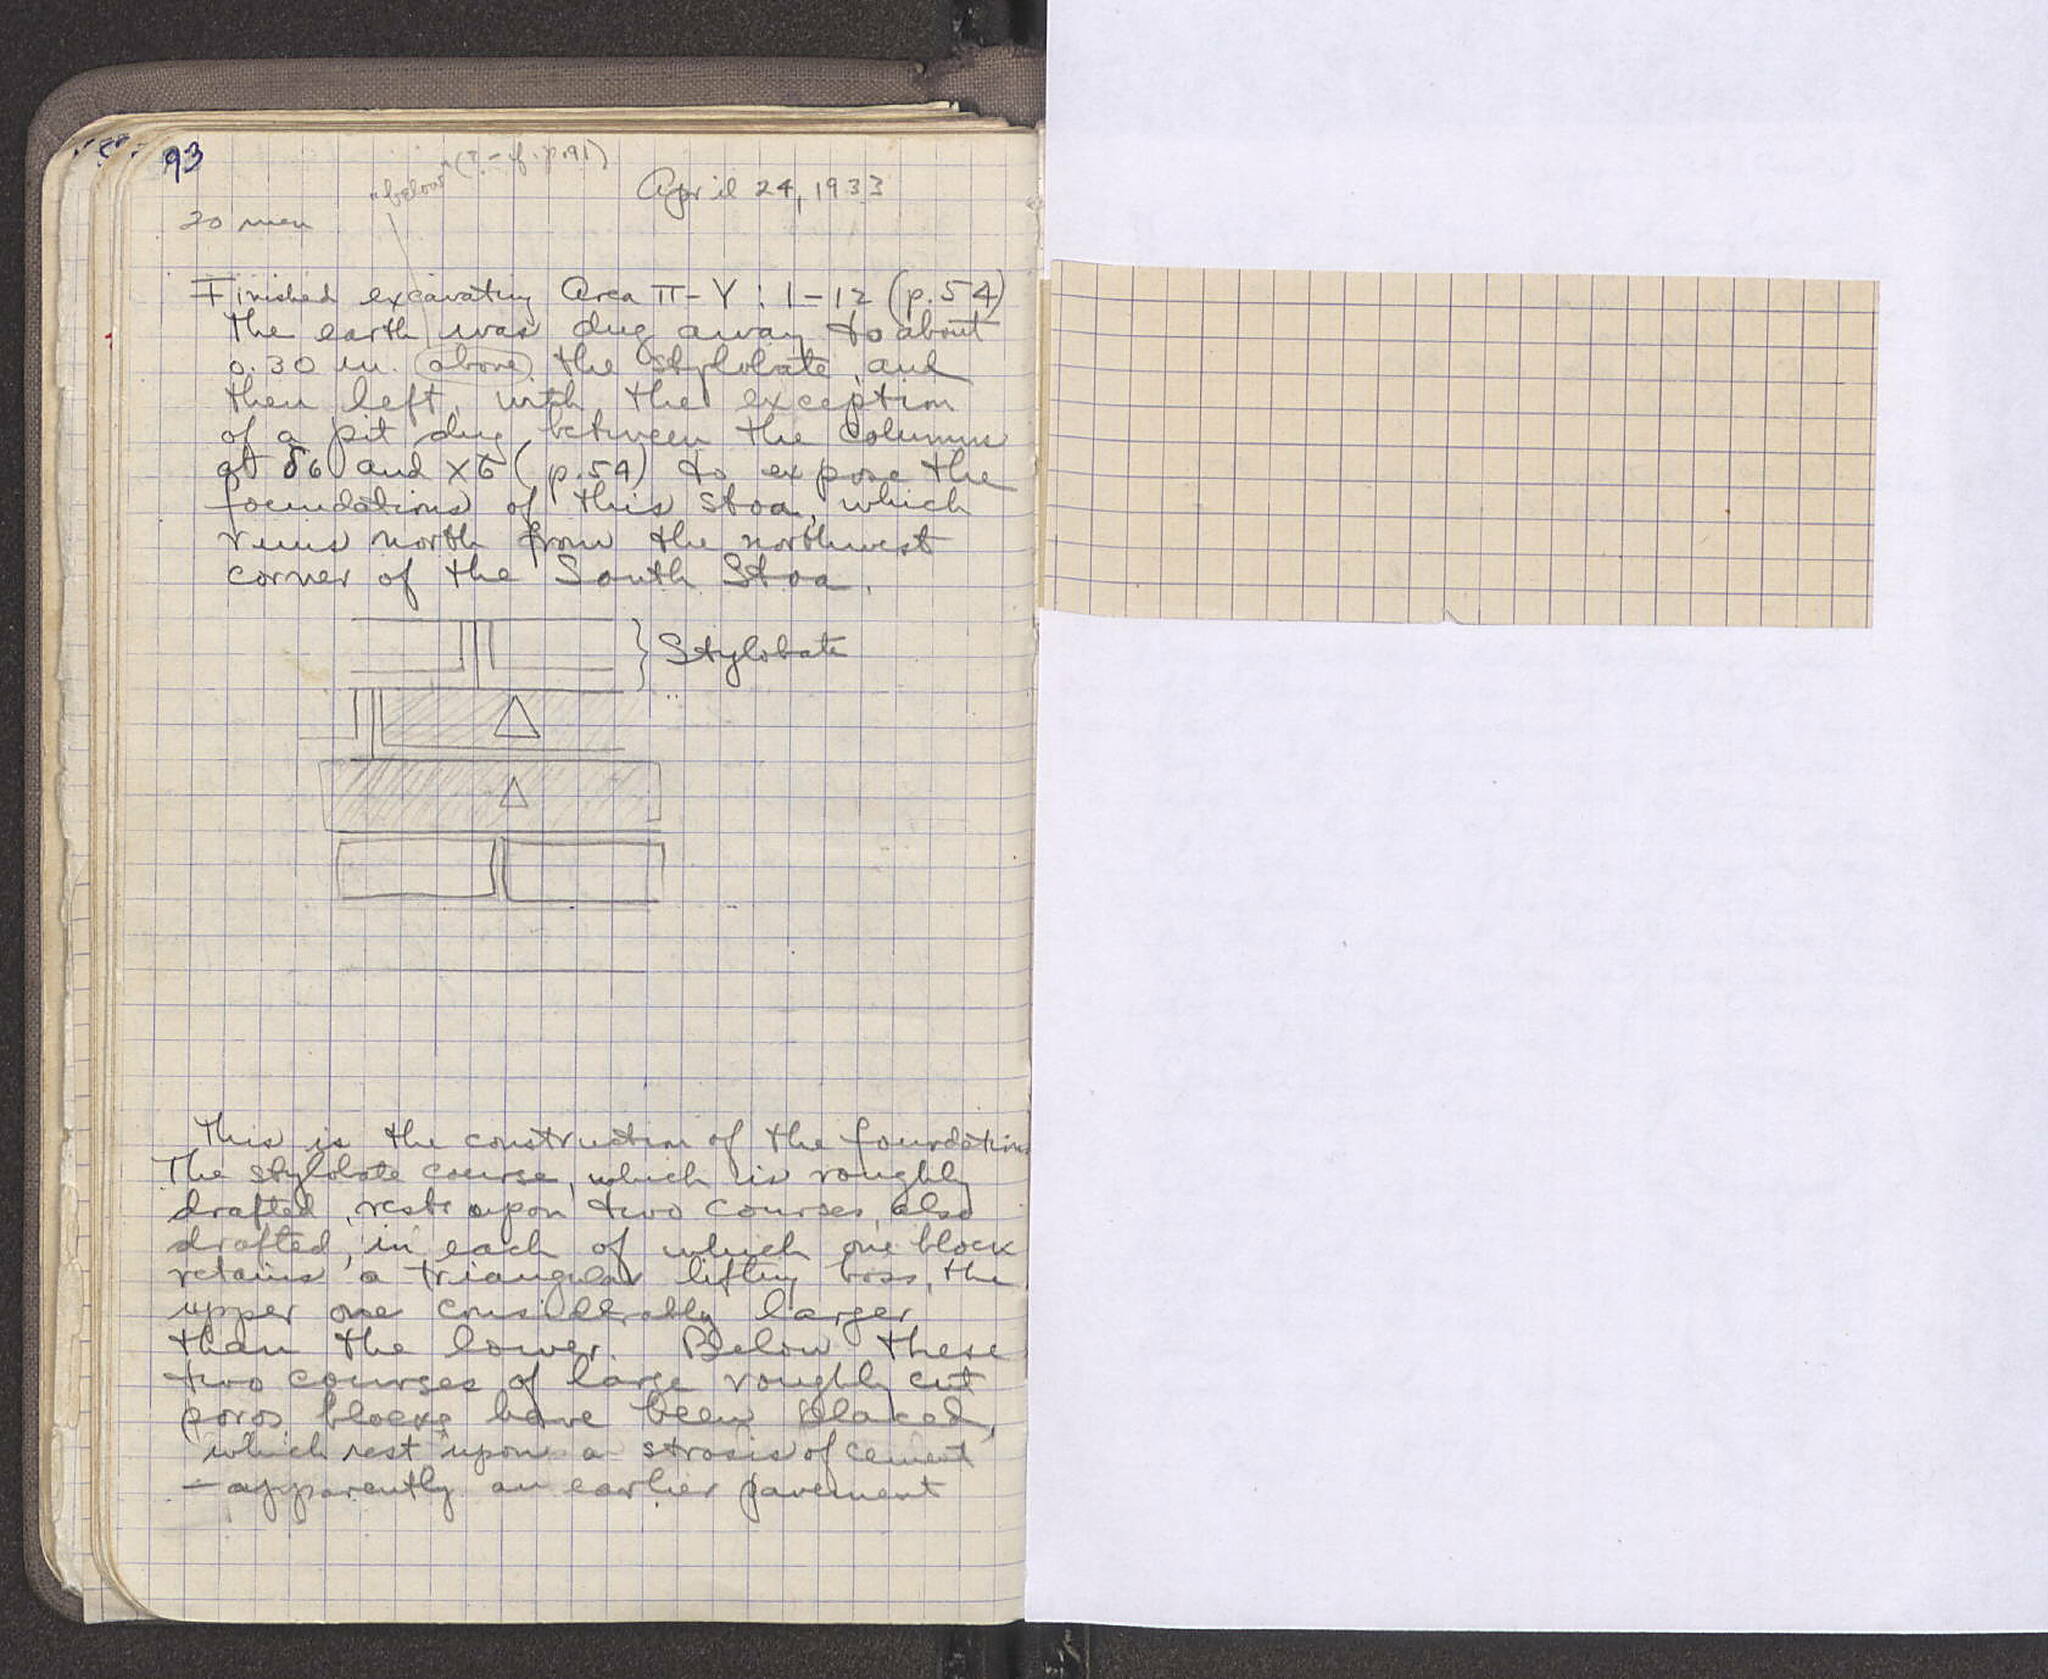 93
"below" (? - cf. p. 91)
April 24, 1933
20 men
Finished excavating Area Π-Y : 1-12 (p. 54)
The earth was dug away to about
0.30 m. above the stylobate, and
then left, with the exception
of a pit dug between the columns
at δ6 and X6 (p. 54) to expose the
foundations of this stoa, which
runs north from the northwest
corner of the South Stoa.
Stylobate
This is the construction of the foundations
The stylobate course, which is roughly
drafted, rests upon two courses, also
drafted, in each of which one block
retains a triangular lifting boss, the
upper one considerably larger
than the lower. Below these
two courses of large roughly cut
poros blocks have been placed,
which rest upon a strosis of cement
- apparently an earlier pavement